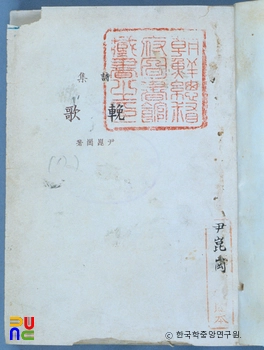 朝鮮總督
府圖書館
藏書之印
詩集
輓歌
尹崑崗著
尹崑崗
ⓒ 한국학중앙연구원